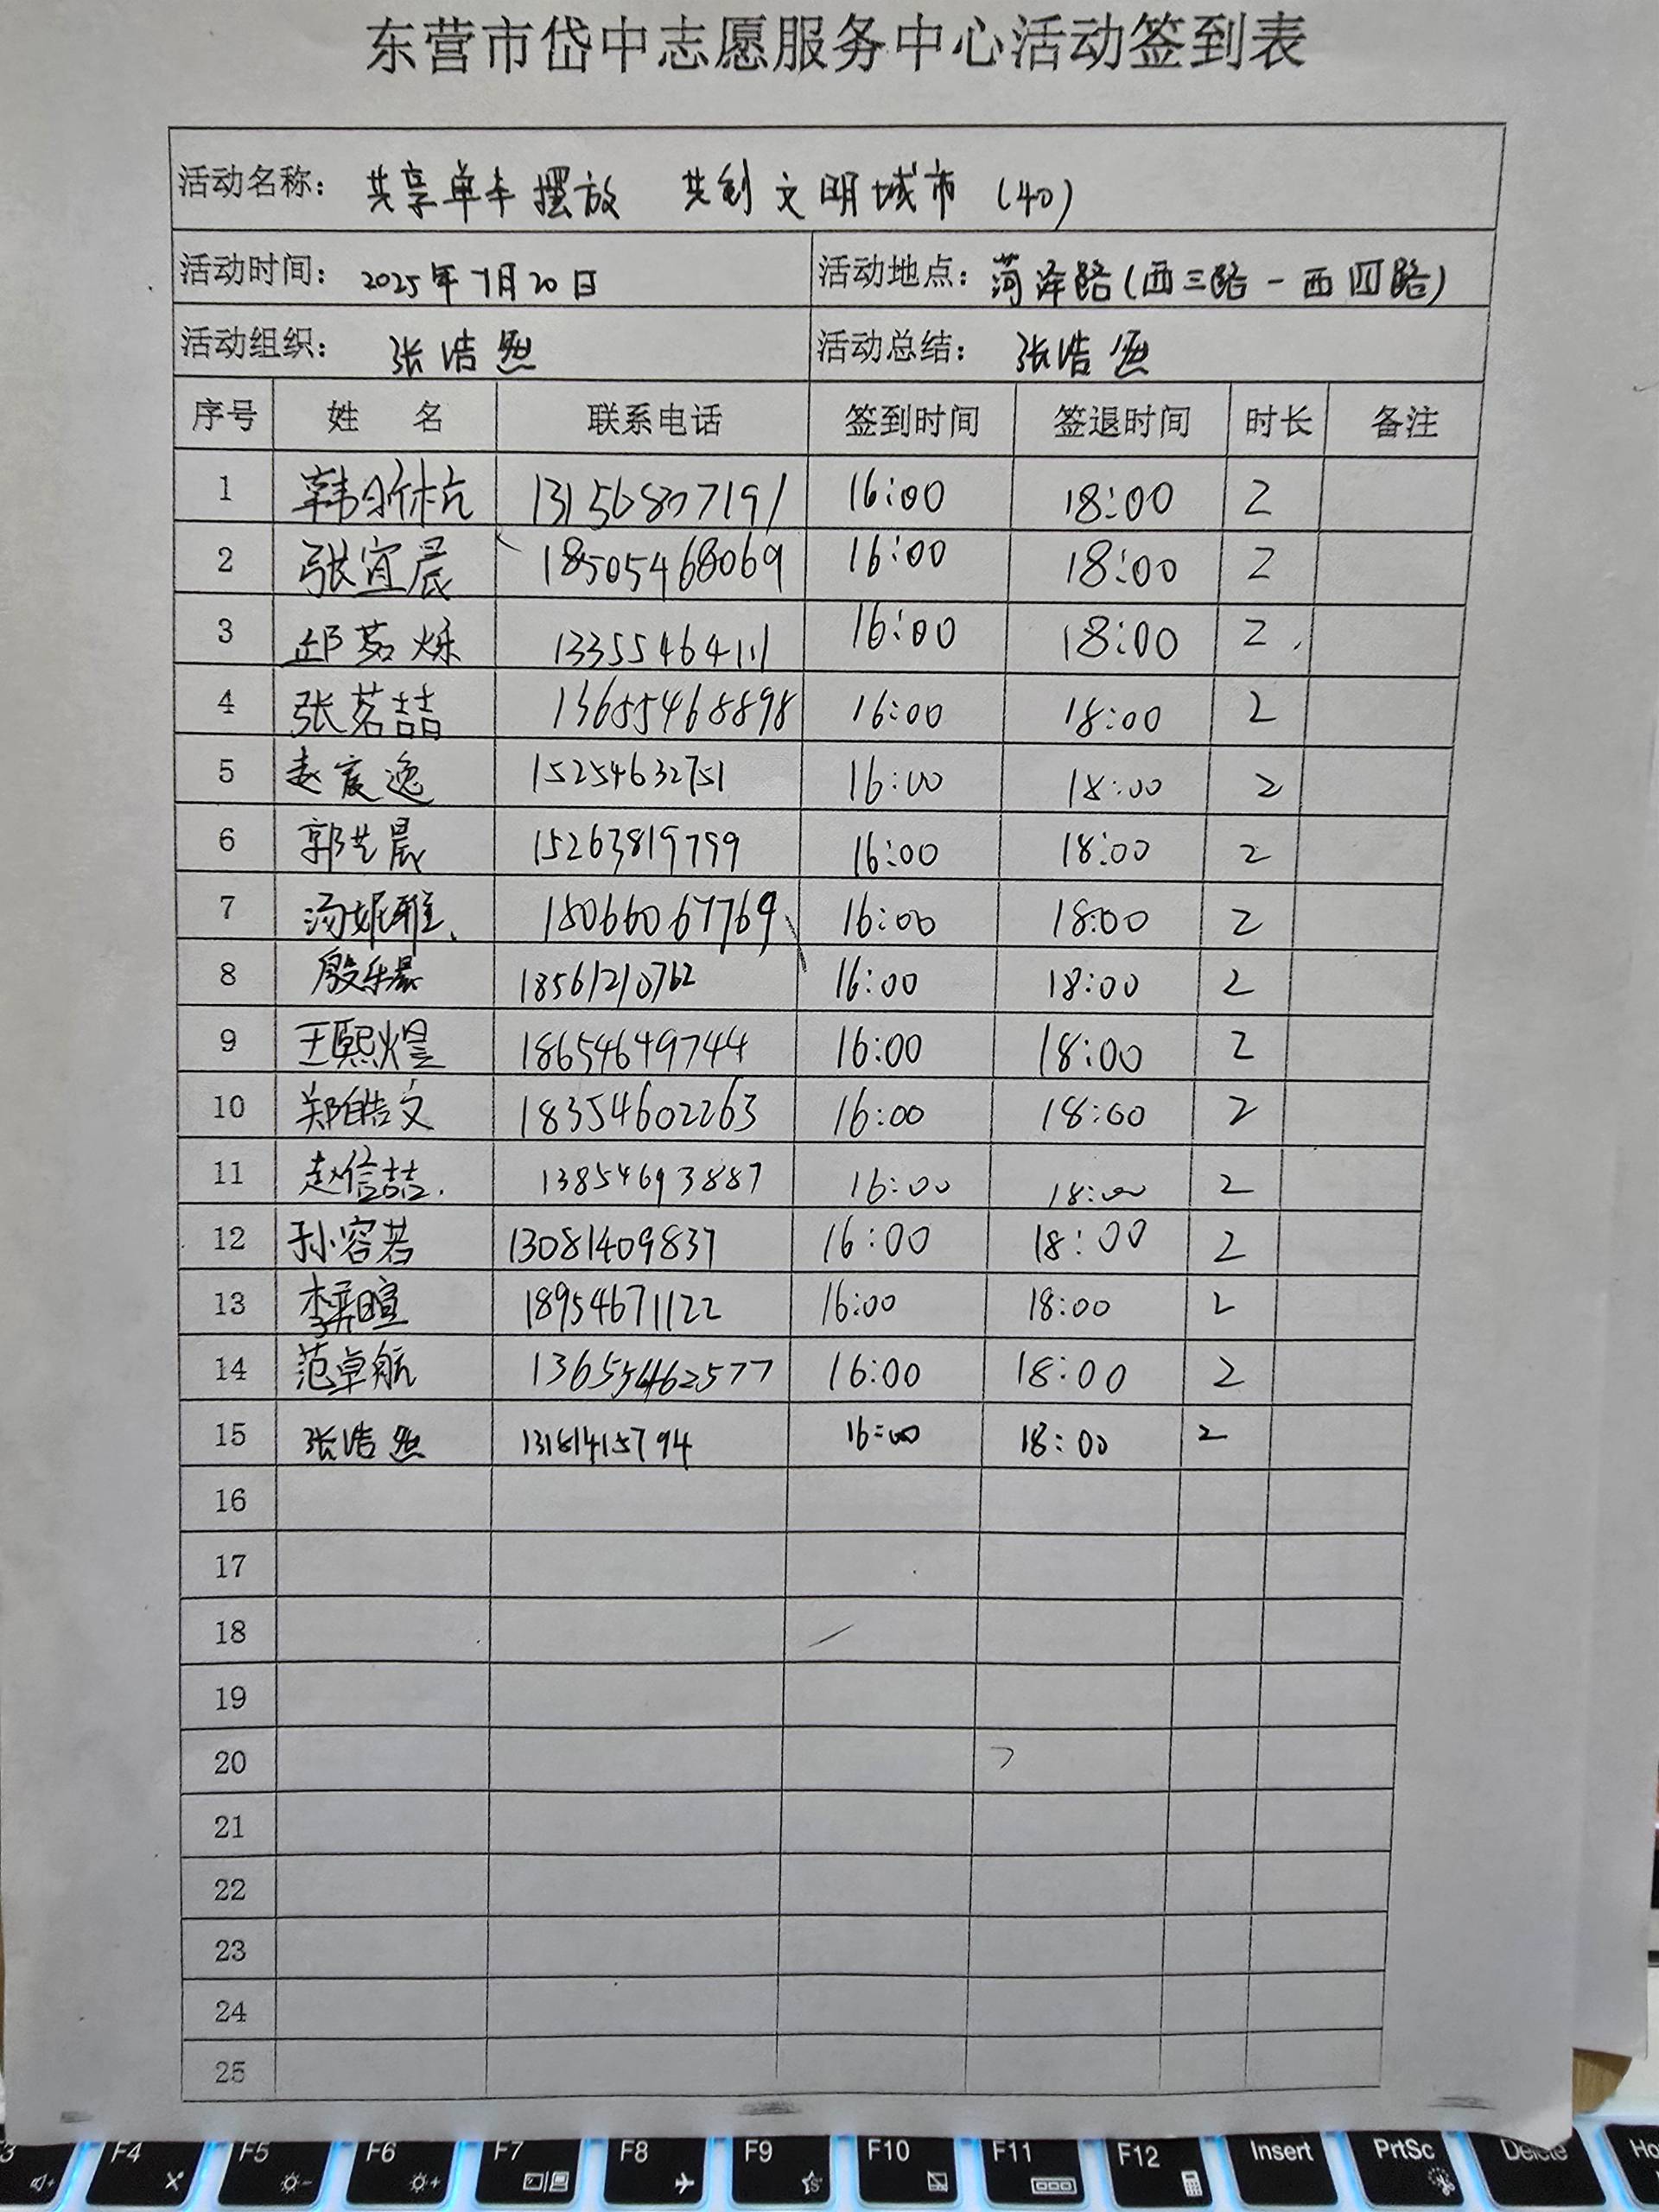 东营市岱中志愿服务中心活动签到表
活动名称： 共享单车摆放 共创文明城市 (40)
活动时间： 2025年7月20日 活动地点： 菏泽路(西三路-西四路)
活动组织： 张浩然 活动总结： 张浩然
序号 姓 名 联系电话 签到时间 签退时间 时长 备注
1 韩昕杭 16:00 18:00 2
2 张宜晨 18505468069 16:00 18:00 2
3 邱茗烁 13355464111 16:00 18:00 2
4 张茗喆 13655468898 16:00 18:00 2
5 赵宸逸 15254632751 16:00 18:00 2
6 郭艺晨 15263819799 16:00 18:00 2
7 汤妮雅 18066067769 16:00 18:00 2
8 殷乐晨 18561210762 16:00 18:00 2
9 王熙煜 18654649744 16:00 18:00 2
10 郑皓文 18354602263 16:00 18:00 2
11 赵信喆. 13854693887 16:00 18:00 2
12 孙容若 13081409837 16:00 18:00 2
13 李弈暄 18954671122 16:00 18:00 2
14 范卓航 13655462577 16:00 18:00 2
15 张浩然 16:00 18:00 2
16
17
18
19
20
21
22
23
24
25
F4 F5 F6 F7 F8 F9 F10 F11 F12 Insert PrtSc Delete